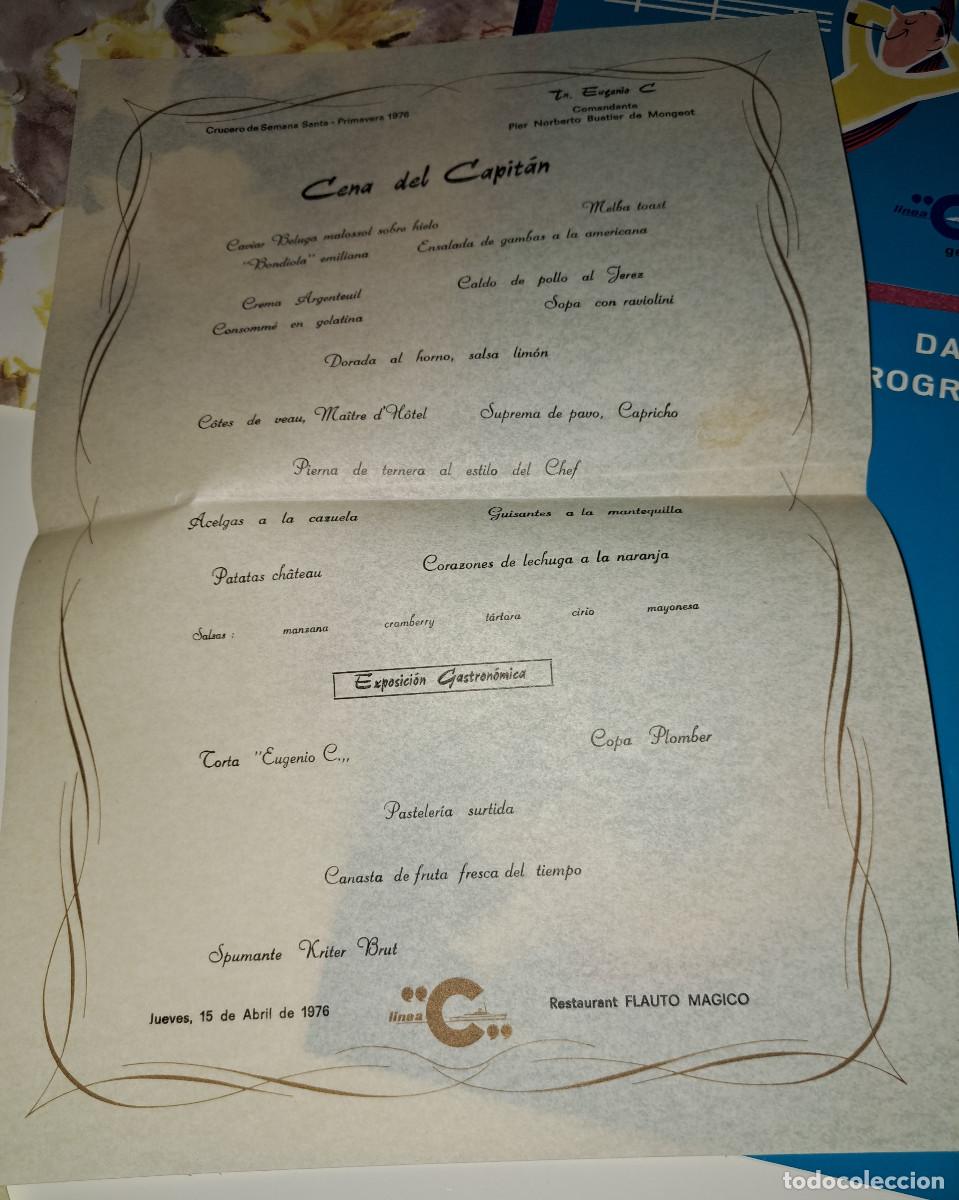 Crucero de Semana Santa - Primavera 1976
Tn. Eugenio C
Comandante
Pier Norberto Bustier de Mongeot
Cena del Capitán
Melba toast
Caviar Beluga malossol sobre hielo
Ensalada de gambas a la americana
"Bondiola" emiliana
Caldo de pollo al Jerez
Crema Argenteuil
Sopa con raviolini
Consommé en gelatina
Dorada al horno, salsa limón
Côtes de veau, Maître d'Hôtel Suprema de pavo, Capricho
Pierna de ternera al estilo del Chef
Acelgas a la cazuela Guisantes a la mantequilla
Patatas château Corazones de lechuga a la naranja
Salsas : manzana cramberry tártara cirio mayonesa
Exposición Gastronómica
Torta "Eugenio C.,, Copa Plomber
Pastelería surtida
Canasta de fruta fresca del tiempo
Spumante Kriter Brut
Jueves, 15 de Abril de 1976
linea "C,,
Restaurant FLAUTO MAGICO
linea
DA
ROGR
todocoleccion